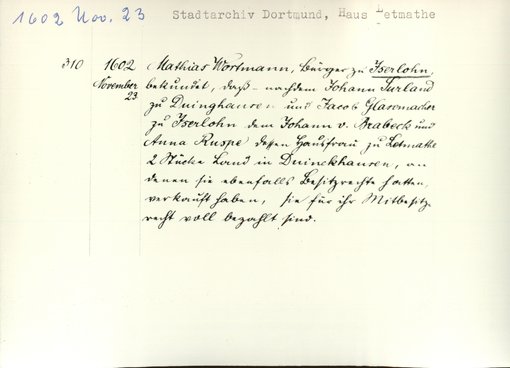 1602 Nov. 23 Stadtarchiv Dortmund, Haus Letmathe
310 1602 Mathias Wortmann, Bürger zu Iserlohn,
November bekundet, daß - nachdem Johann Turland
23 zu Duinghausen und Jacob Glasemacher
zu Iserlohn dem Johann v. Brabeck und
Anna Ruspe dessen Hausfrau zu Letmathe
2 Stücke Land in Duinckhausen, an
denen sie ebenfalls Besitzrechte hatten,
verkauft haben, sie für ihr Mitbesitz-
recht voll bezahlt sind.